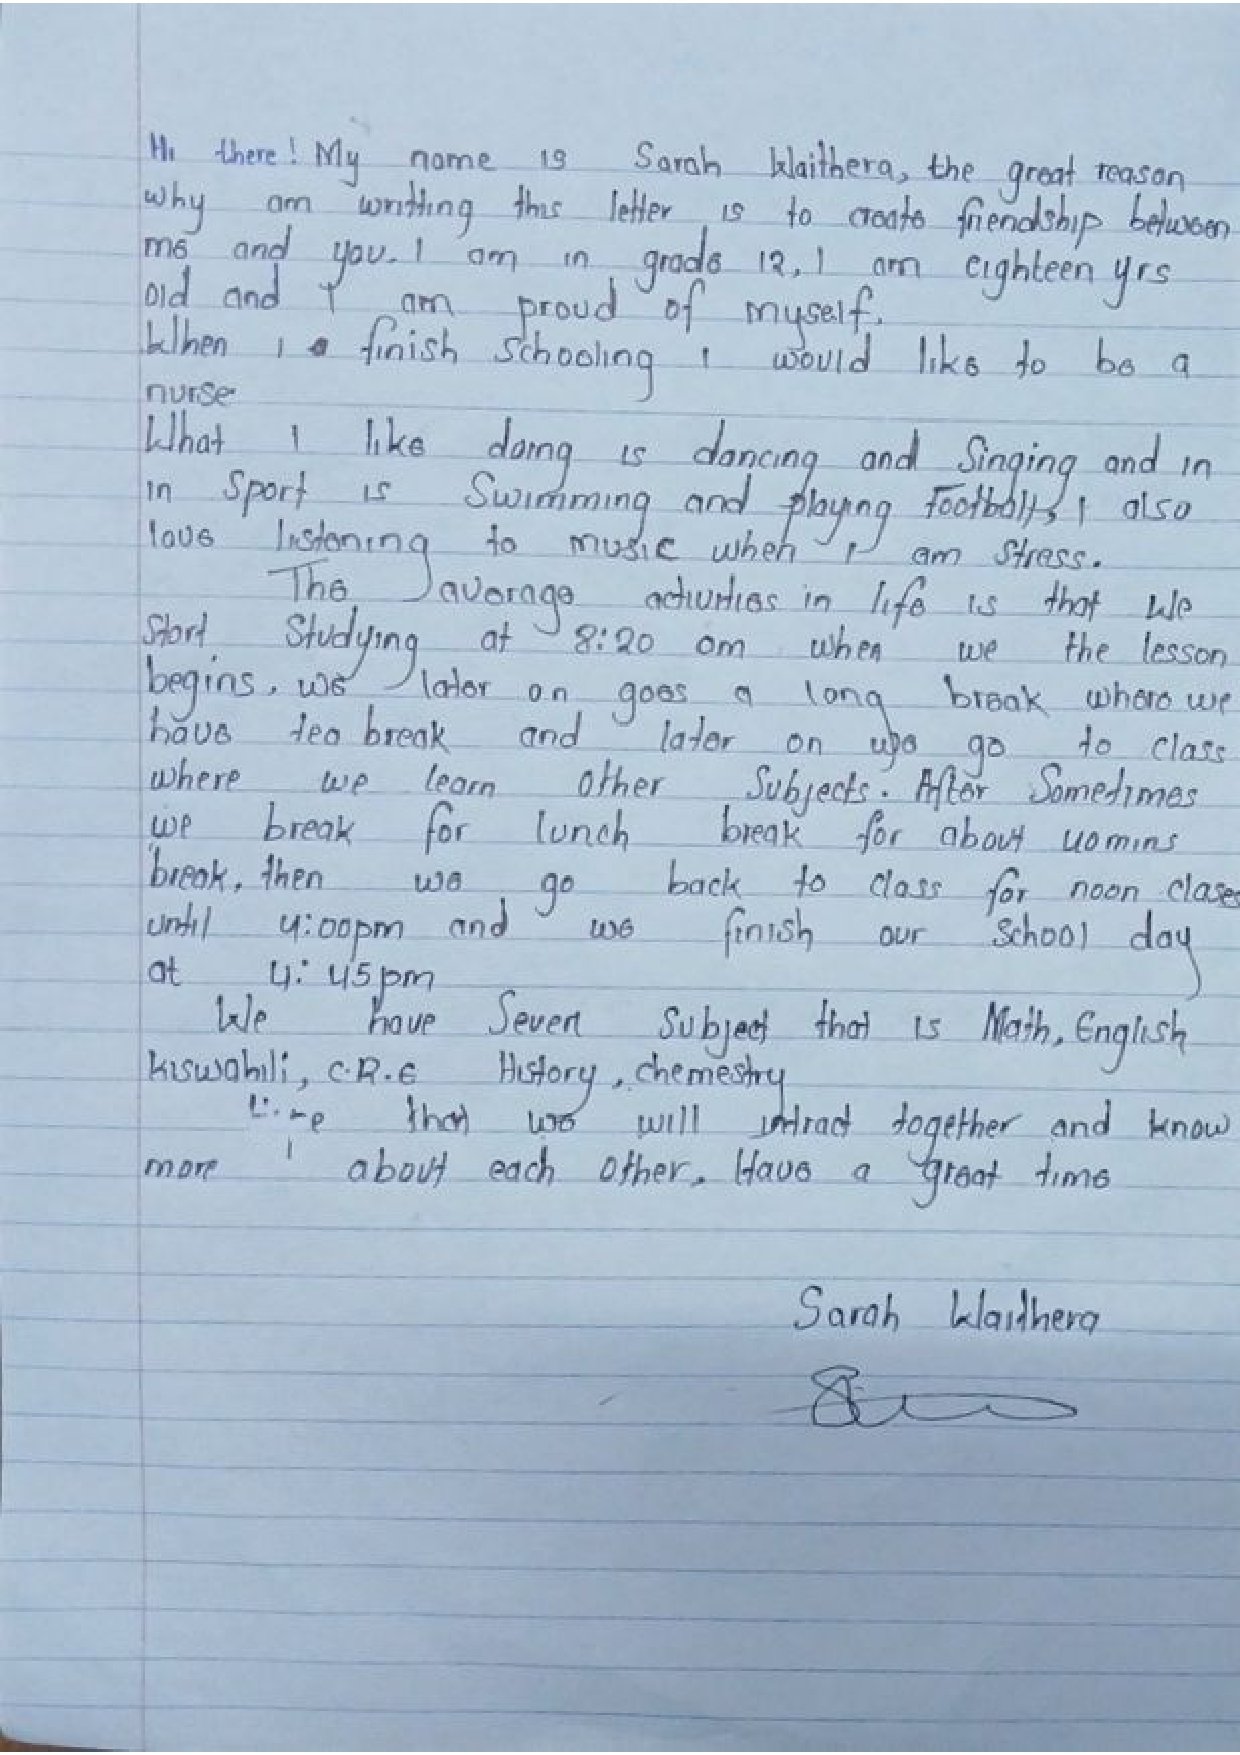 Hi there! My name is Sarah Waithera, the great reason
why am writting this letter is to create friendship between
me and you. I am in grade 12, I am eighteen yrs
old and I am proud of myself.
When I finish schooling I would like to be a
nurse
What I like doing is dancing and Singing and in
in Sport is Swimming and playing Football, I also
love listening to music when I am stress.
The average activities in life is that we
Start Studying at 8:20 am when we the lesson
begins. we later on goes a long break where we
have tea break and later on we go to class
where we learn other Subjects. After Sometimes
we break for lunch break for about 40mins
break, then we go back to class for noon clases
until 4:00pm and we finish our school day
at 4:45pm
We have Seven Subject that is Math, English
kiswahili, C.R.E History, chemestry
that we will intract together and know
more about each other. Have a great time
Sarah Waithera